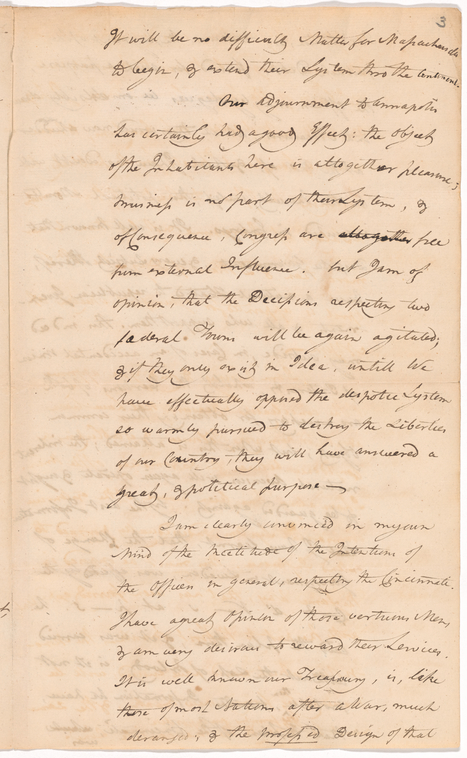 3
It will be no difficulty Matter for Massachusetts
to begin, & extend their System thro the Continent.
Our Adjournment to Annapolis
has certainly had a good Effect: the Object
of the Inhabitants here is altogether pleasure;
business is no part of their System, &
of Consequence, Congress are altogether free
from external Influence. but I am of
opinion, that the Decisions respecting two
fœderal Towns will be again agitated;
& if they only exist in Idea, untill We
have effectually opposed the despotic System
so warmly pursued to destroy the Liberties
of our Country they will have answered a
great, & political purpose —
I am clearly convinced in my own
Mind of the Rectitude of the Intentions of
the Officers in general, respecting the Cincinnati.
I have a great Opinion of those vertuous Men,
& am very desirous to reward their Services.
It is well known our Treasury, is, like
those of most Nations after a War, much
deranged, & the professed Design of that